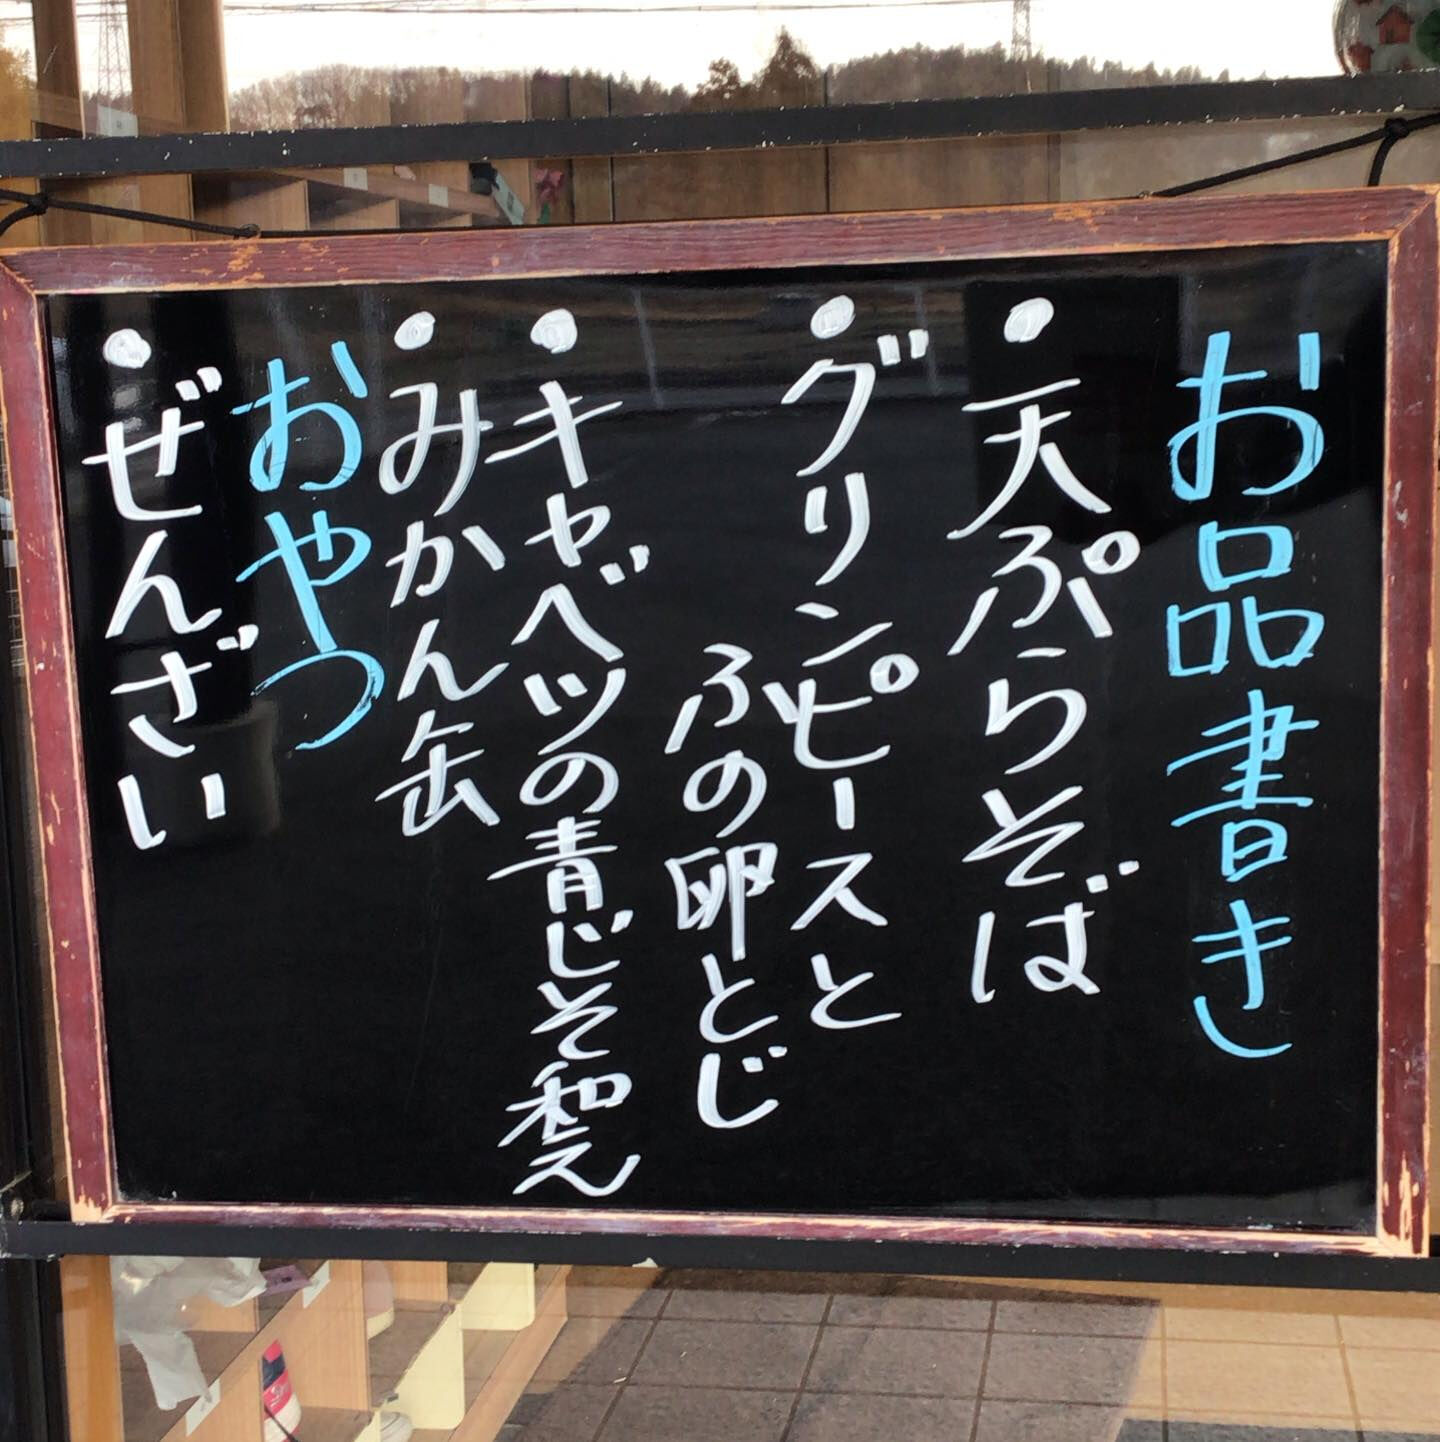 お品書き
・天ぷらそば
・グリンピースと
ふの卵とじ
・キャベツの青じそ和え
・みかん缶
おやつ
・ぜんざい